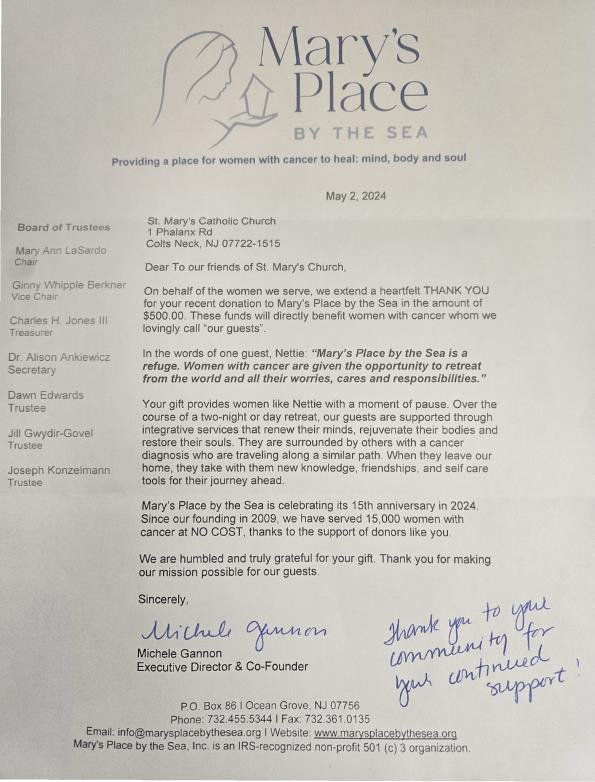 Mary's
Place
BY THE SEA
Providing a place for women with cancer to heal: mind, body and soul
May 2, 2024
Board of Trustees
Mary Ann LaSardo
Chair
Ginny Whipple Berkner
Vice Chair
Charles H. Jones III
Treasurer
Dr. Alison Ankiewicz
Secretary
Dawn Edwards
Trustee
Jill Gwydir-Govel
Trustee
Joseph Konzelmann
Trustee
St. Mary's Catholic Church
1 Phalanx Rd
Colts Neck, NJ 07722-1515
Dear To our friends of St. Mary's Church,
On behalf of the women we serve, we extend a heartfelt THANK YOU
for your recent donation to Mary's Place by the Sea in the amount of
$500.00. These funds will directly benefit women with cancer whom we
lovingly call "our guests".
In the words of one guest, Nettie: "Mary's Place by the Sea is a
refuge. Women with cancer are given the opportunity to retreat
from the world and all their worries, cares and responsibilities."
Your gift provides women like Nettie with a moment of pause. Over the
course of a two-night or day retreat, our guests are supported through
integrative services that renew their minds, rejuvenate their bodies and
restore their souls. They are surrounded by others with a cancer
diagnosis who are traveling along a similar path. When they leave our
home, they take with them new knowledge, friendships, and self care
tools for their journey ahead.
Mary's Place by the Sea is celebrating its 15th anniversary in 2024.
Since our founding in 2009, we have served 15,000 women with
cancer at NO COST, thanks to the support of donors like you.
We are humbled and truly grateful for your gift. Thank you for making
our mission possible for our guests.
Sincerely,
Michele Gannon
Michele Gannon
Executive Director & Co-Founder
Thank you to your
community for
your continued
support!
P.O. Box 86 I Ocean Grove, NJ 07756
Phone: 732.455.5344 I Fax: 732.361.0135
Email: info@marysplacebythesea.org I Website: www.marysplacebythesea.org
Mary's Place by the Sea, Inc. is an IRS-recognized non-profit 501 (c) 3 organization.